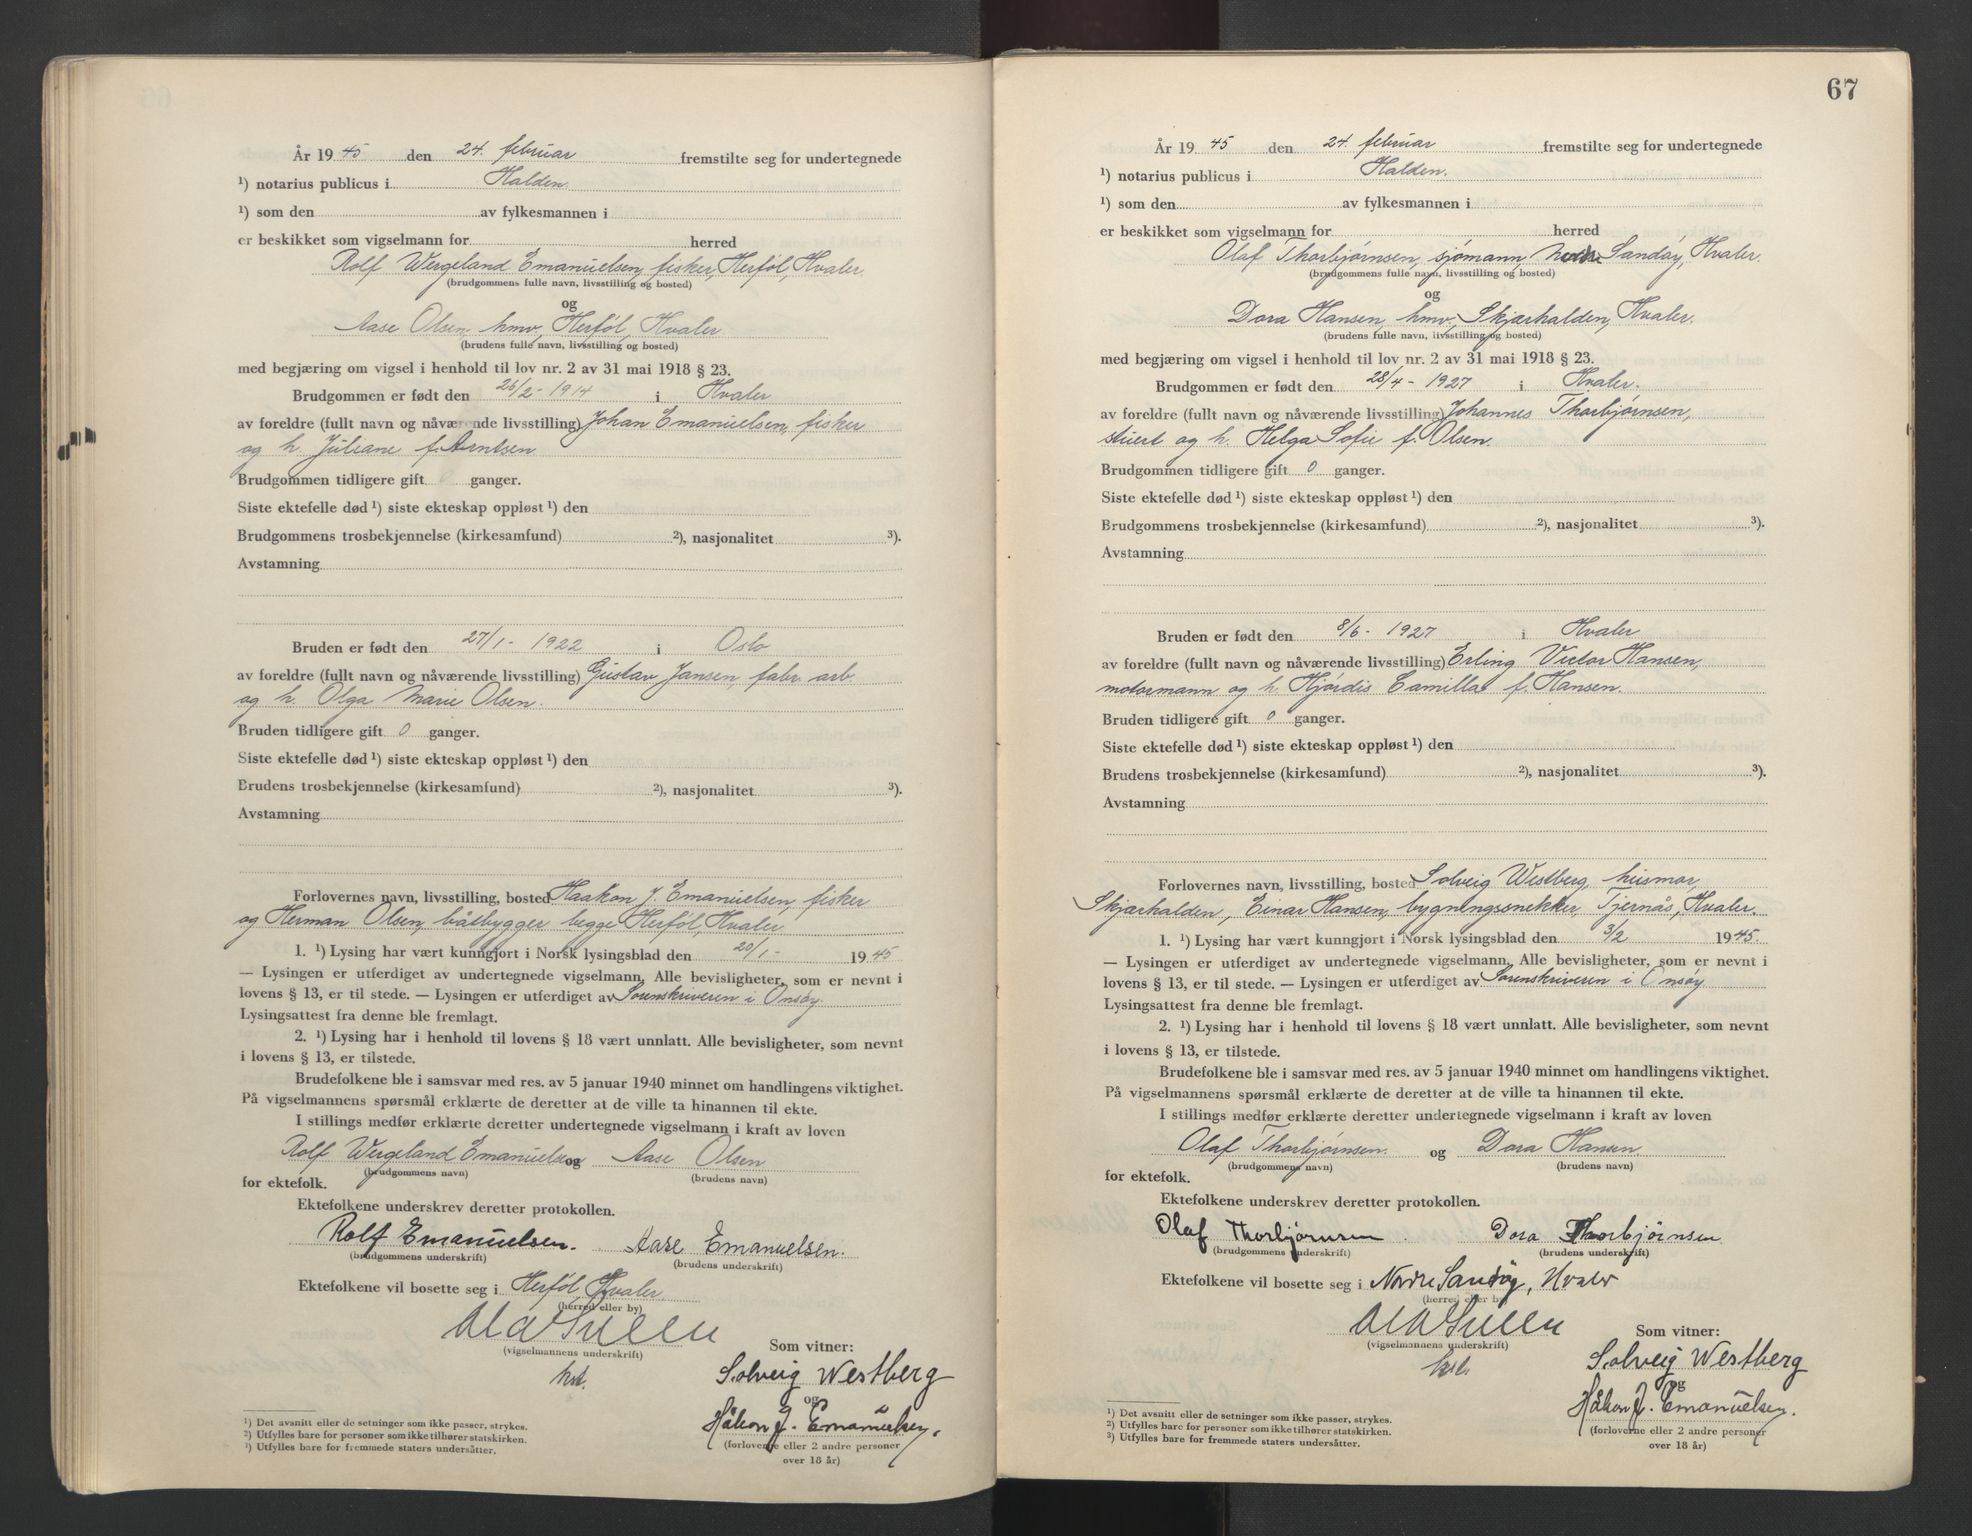 År 1945 den 24. februar fremstilte seg for undertegnede
¹) notarius publicus i Halden.
¹) som den av fylkesmannen i
er beskikket som vigselmann for herred
Rolf Wergeland Emanuelsen, fisker, Herføl, Hvaler.
(brudgommens fulle navn, livsstilling og bosted)
og
Aase Olsen, hmv, Herføl, Hvaler.
(brudens fulle navn, livsstilling og bosted)
med begjæring om vigsel i henhold til lov nr. 2 av 31 mai 1918 § 23.
Brudgommen er født den 26/2 - 1914 i Hvaler
av foreldre (fullt navn og nåværende livsstilling) Johan Emanuelsen, fisker
og h. Juliane f. Arntsen
Brudgommen tidligere gift 0 ganger.
Siste ektefelle død ¹) siste ekteskap oppløst ¹) den
Brudgommens trosbekjennelse (kirkesamfund) ²), nasjonalitet ³).
Avstamning
Bruden er født den 27/1 - 1922 i Oslo
av foreldre (fullt navn og nåværende livsstilling) Gustav Jansen, fabr. arb
og h. Olga Marie Olsen.
Bruden tidligere gift 0 ganger.
Siste ektefelle død ¹) siste ekteskap oppløst ¹) den
Brudens trosbekjennelse (kirkesamfund) ²), nasjonalitet ³).
Avstamning
Forlovernes navn, livsstilling, bosted Haakon J. Emanuelsen, fisker
og Herman Olsen, båtbygger begge Herføl, Hvaler
1. ¹) Lysing har vært kunngjort i Norsk lysingsblad den 20/1 - 1945
— Lysingen er utferdiget av undertegnede vigselmann. Alle bevisligheter, som er nevnt i
lovens § 13, er til stede. — Lysingen er utferdiget av Sorenskriveren i Onsøy
Lysingsattest fra denne ble fremlagt.
2. ¹) Lysing har i henhold til lovens § 18 vært unnlatt. Alle bevisligheter, som nevnt
i lovens § 13, er tilstede.
Brudefolkene ble i samsvar med res. av 5 januar 1940 minnet om handlingens viktighet.
På vigselmannens spørsmål erklærte de deretter at de ville ta hinannen til ekte.
I stillings medfør erklærte deretter undertegnede vigselmann i kraft av loven
Rolf Wergeland Emanuelsen og Aase Olsen
(brudgommens navn) (brudens navn)
for ektefolk.
Ektefolkene underskrev deretter protokollen.
Rolf Emanuelsen. Aase Emanuelsen.
(brudgommens underskrift) (brudens underskrift)
Ektefolkene vil bosette seg i Herføl, Hvaler.
(herred eller by)
(vigselmannens underskrift)
Som vitner:
Solveig Westberg
og
Håkon J. Emanuelsen.
(forloverne eller 2 andre personer
over 18 år)
¹) Det avsnitt eller de setninger som ikke passer, strykes.
²) Utfylles bare for personer som ikke tilhører statskirken.
³) Utfylles bare for fremmede staters undersåtter.
67
År 1945 den 24 februar fremstilte seg for undertegnede
¹) notarius publicus i Halden.
¹) som den av fylkesmannen i
er beskikket som vigselmann for herred
Olaf Thorbjørnsen, sjømann, Nordre Sandøy, Hvaler.
(brudgommens fulle navn, livsstilling og bosted)
og
Dora Hansen, hmv, Skjærhalden, Hvaler.
(brudens fulle navn, livsstilling og bosted)
med begjæring om vigsel i henhold til lov nr. 2 av 31 mai 1918 § 23.
Brudgommen er født den 28/4 - 1927 i Hvaler.
av foreldre (fullt navn og nåværende livsstilling) Johannes Thorbjørnsen,
stuert og h. Helga Sofie f. Olsen.
Brudgommen tidligere gift 0 ganger.
Siste ektefelle død ¹) siste ekteskap oppløst ¹) den
Brudgommens trosbekjennelse (kirkesamfund) ²), nasjonalitet ³).
Avstamning
Bruden er født den 8/6 - 1927 i Hvaler
av foreldre (fullt navn og nåværende livsstilling) Erling Victor Hansen,
motormann og h. Hjørdis Camilla f. Hansen.
Bruden tidligere gift 0 ganger.
Siste ektefelle død ¹) siste ekteskap oppløst ¹) den
Brudens trosbekjennelse (kirkesamfund) ²), nasjonalitet ³).
Avstamning
Forlovernes navn, livsstilling, bosted Solveig Westberg, husmor,
Skjærhalden, Einar Hansen, bygningssnekker, Tjernås, Hvaler.
1. ¹) Lysing har vært kunngjort i Norsk lysingsblad den 3/2 1945.
— Lysingen er utferdiget av undertegnede vigselmann. Alle bevisligheter, som er nevnt i
lovens § 13, er til stede. — Lysingen er utferdiget av Sorenskriveren i Onsøy
Lysingsattest fra denne ble fremlagt.
2. ¹) Lysing har i henhold til lovens § 18 vært unnlatt. Alle bevisligheter, som nevnt
i lovens § 13, er tilstede.
Brudefolkene ble i samsvar med res. av 5 januar 1940 minnet om handlingens viktighet.
På vigselmannens spørsmål erklærte de deretter at de ville ta hinannen til ekte.
I stillings medfør erklærte deretter undertegnede vigselmann i kraft av loven
Olaf Thorbjørnsen. og Dora Hansen
(brudgommens navn) (brudens navn)
for ektefolk.
Ektefolkene underskrev deretter protokollen.
Olaf Thorbjørnsen. Dora Thorbjørnsen
(brudgommens underskrift) (brudens underskrift)
Ektefolkene vil bosette seg i Nordre Sandøy, Hvaler
(herred eller by)
(vigselmannens underskrift)
Som vitner:
Solveig Westberg
og
Håkon J. Emanuelsen.
(forloverne eller 2 andre personer
over 18 år)
¹) Det avsnitt eller de setninger som ikke passer, strykes.
²) Utfylles bare for personer som ikke tilhører statskirken.
³) Utfylles bare for fremmede staters undersåtter.